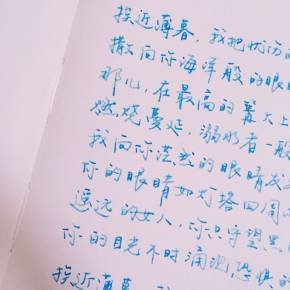 挨近薄暮，我把忧伤
撒向你海洋般的眼
那儿，在最高的篝火上
燃烧蔓延，溺水者一般
我向你茫然的眼睛发
你的眼睛如灯塔四周
遥远的女人，你只守望黑
你的目光不时涌现恐惧的
挨近薄暮